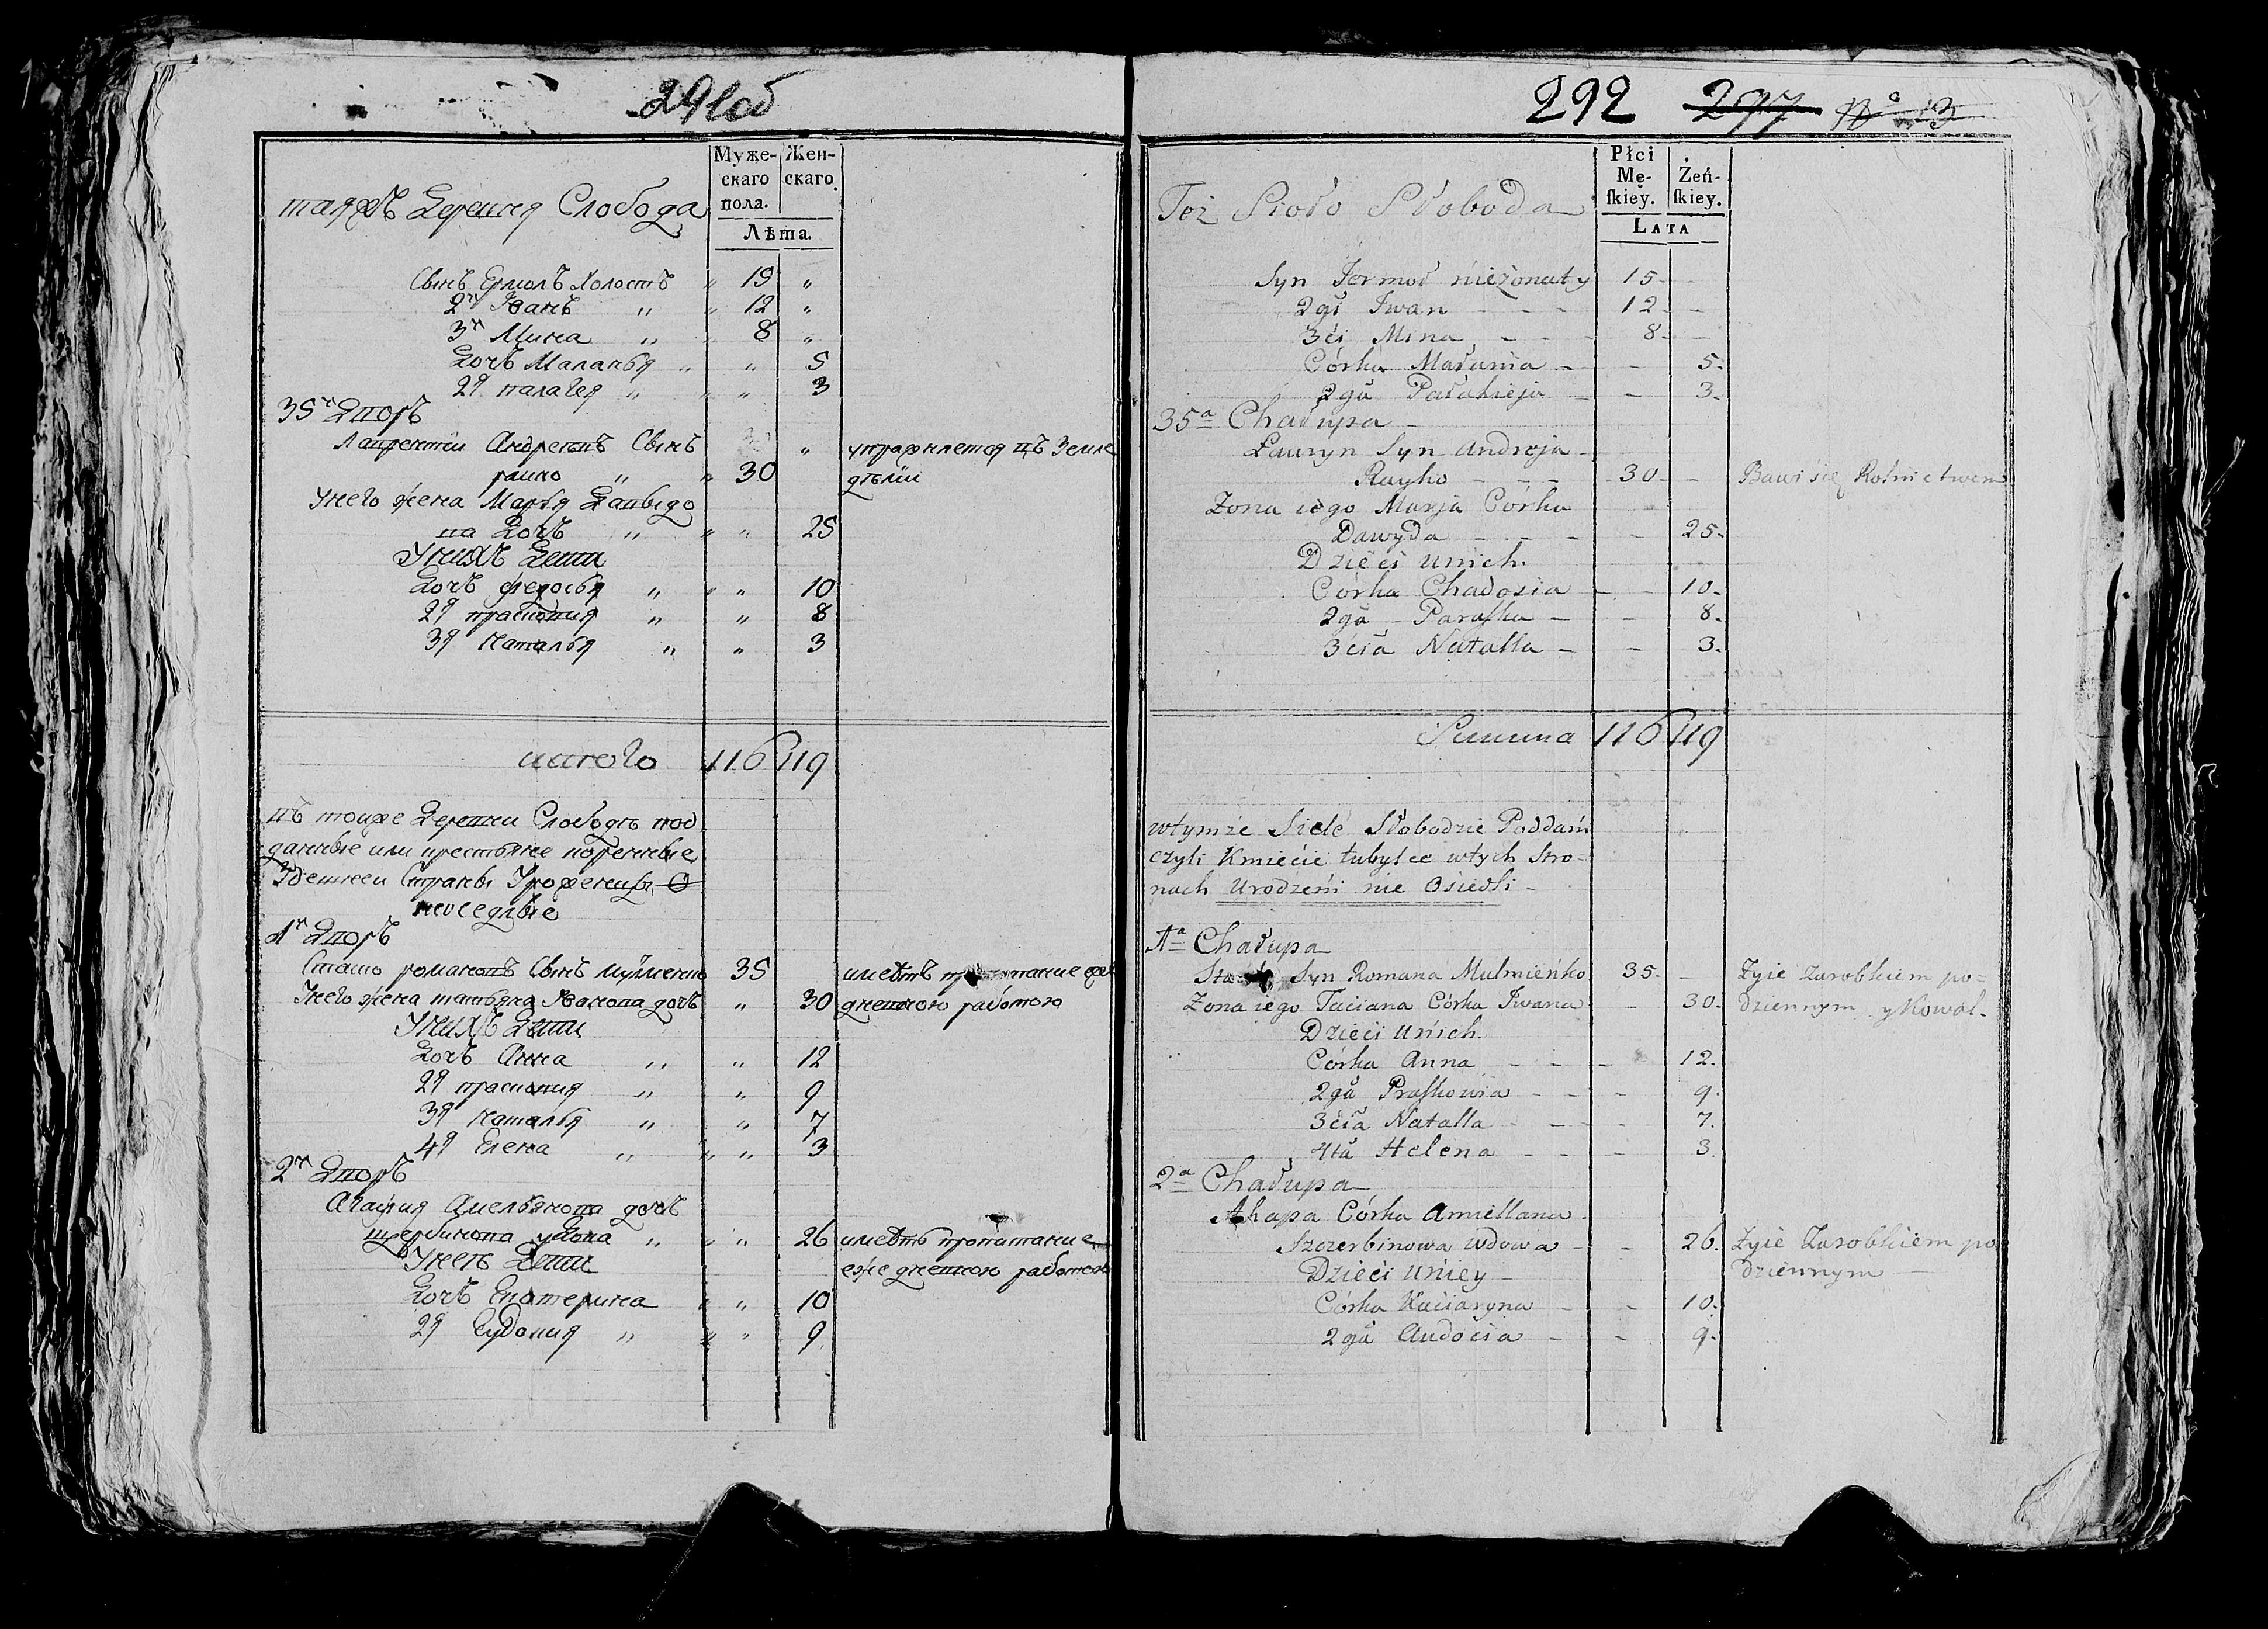 291об
Муже- Жен-
скаго скаго.
пола.
таяжъ Деревня Слобода
Лѣта.
Сынъ Ермолъ Холостъ " 19 "
2й Иванъ " " 12 "
3й Мина " " 8 "
Дочь Маланья " " 5
2я палагея " " " 3
35й Дворъ
Лаврентіи Андреевъ Сынъ " упражняется въ Земле
райко " " 30 дѣліи
Унего жена Марья Давыдо
ва Дочь " " " 25
Унихъ Дети
Дочь федосья " " " 10
2я прасковия " " 8
3я Наталья " " 3
итого 116 119
въ тойже Деревни Слободѣ под
данные или крестьяне коренные
Здешнеи Страны Урожен
неоседлые
1й Дворъ
Сташко романовъ Сынъ мулменко 35 имеетъ пропитание еже
Унего жена татьяна Иванова дочь " 30 дневною работою
Унихъ Дети
Дочь Анна " " 12
2я прасковия " " 9
3я Наталья " " 7
4я Елена " " " 3
2й Дворъ
Агафия Амельянова дочь
щербинова вдова " " " 26 имеетъ пропитание
Унеѣ Дети еже дневною работою
Дочь Екатерина " " 10
2я Еудокия " " " 9
292 297 № 13
Płci
Mę- Żeń-
skiey. skiey.
Też Sioło Słoboda
LATA
Syn Jermoł nieżonaty 15 -
2gi Iwan - - - 12 -
3ci Mina - - - 8 -
Córka Małania - - 5.
2gá Pałahieja - - 3.
35ª Chałupa
Ławryn Syn Andreja
Rayko - - - 30 - Bawi się Rolnictwem
Żona iego Marja Córka
Dawyda - - - - 25.
Dzieci unich.
Córka Chadosia - - 10.
2gá Paraska - - 8.
3ciá Natalla - - 3.
Summa 116 119
wtymże Siele Słobodzie Poddani
czyli Kmiecie tubylce wtych Stro-
nach Urodzeni nie Osiedli -
1ª Chałupa
Syn Romana Mulmieńko 35. - Żyie zarobkiem po-
Żona iego Taciana Córka Iwana - 30. dziennym y Kowal.
Dzieci unich.
Córka Anna - - - 12.
2gá Praskowia - - - 9.
3ciá Natalla - - - 7.
4tá Helena - - - 3.
2ª Chałupa
Ahapa Córka Amiellana
Szczerbinowa wdowa - - 26. Żyie Zarobkiem po
Dzieci uniey - dziennym -
Córka Kaciaryna - - 10.
2gá Audocia - - 9.